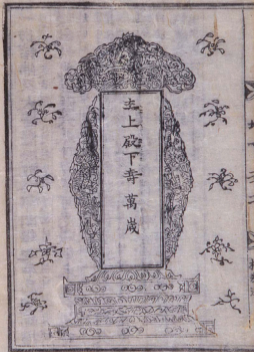 主上殿下壽萬歲